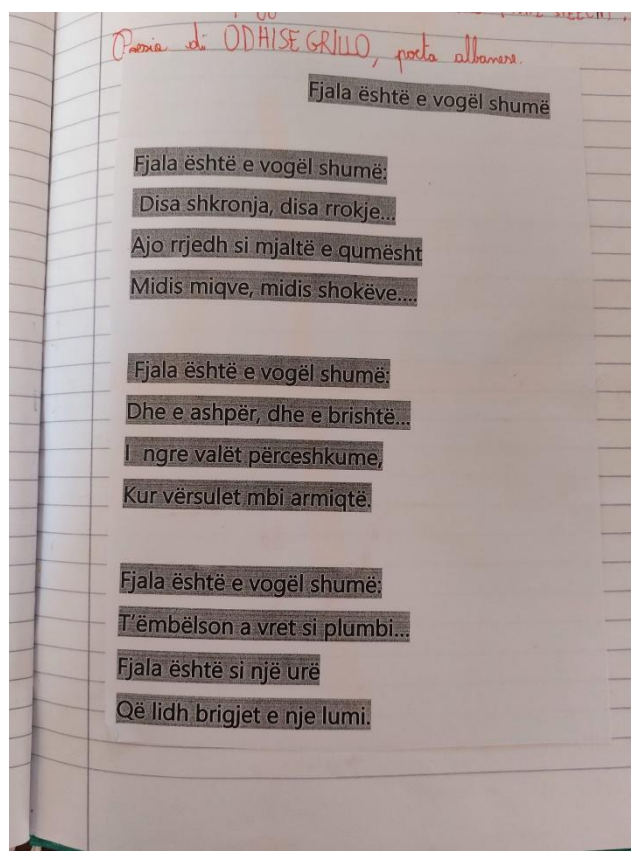 Poesia di ODHISE GRILLO, poeta albanese.
Fjala është e vogël shumë
Fjala është e vogël shumë:
Disa shkronja, disa rrokje...
Ajo rrjedh si mjaltë e qumësht
Midis miqve, midis shokëve....
Fjala është e vogël shumë:
Dhe e ashpër, dhe e brishtë...
I ngre valët përceshkume,
Kur vërsulet mbi armiqtë.
Fjala është e vogël shumë:
T'ëmbëlson a vret si plumbi...
Fjala është si një urë
Që lidh brigjet e nje lumi.